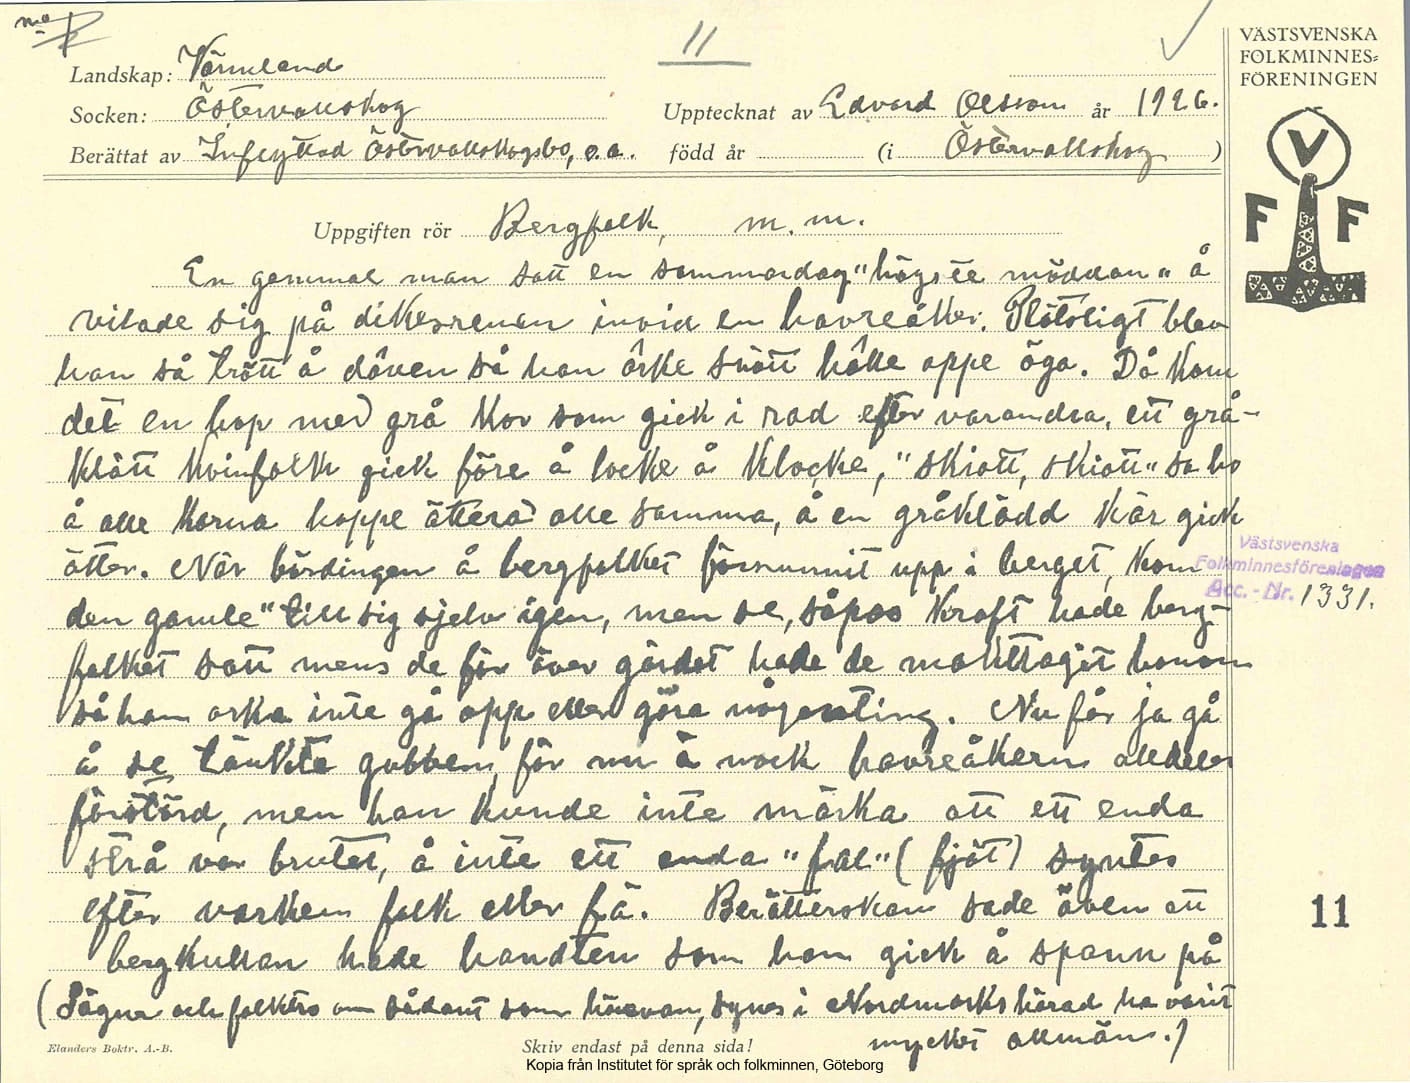 11
VÄSTSVENSKA
FOLKMINNES=
FÖRENINGEN
Landskap: Värmland
Socken: Östervallskog
Upptecknat av Edvard Olsson år 1926.
Berättat av Infeyttad Östervallskogsbo, o.a. född år (i Östervallskog)
V
F F
Uppgiften rör Bergfolk, m.m.
En gammal man satt en sommardag "högste möddan" å
vilade sig på dikesrenen invid en havreåker. Plötsligt blev
han så trött å dåven så han örke snött hålle oppe öga. Då kom
det en hop med grå kor som gick i rad efter varandra, ett grå-
klätt kvinfolk gick före å locke å klocke, "skiatt, skiatt" sa ho
å alle korna hoppe ätterå alle samma, å en gråklädd kär gick
ätter. När bördingen å bergfolket försvunnit upp i berget, kom
den gamle "till sig sjelv igen, men se, såpas kraft hade berg-
folket satt mens de för över gärdet hade de makttagit honom
så han orka inte gå opp eller göra någenting. Nu får ja gå
å se tänkte gubben, för nu ä nock havreåkern alldeles
förstörd, men han kunde inte märka att ett enda
strå var brutet, å inte ett enda "fal" (fjät) syntes
efter varken folk eller fä. Berätterskan sade även att
bergkullan hade handten som hon gick å spann på
(Sägner och folktro om sådant som häruvan, synes i Nordmarks härad ha varit
mycket allmän.)
Västsvenska
Folkminnesföreningen
Acc.-Nr. 1331.
11
Elanders Boktr. A.-B.
Skriv endast på denna sida!
Kopia från Institutet för språk och folkminnen, Göteborg